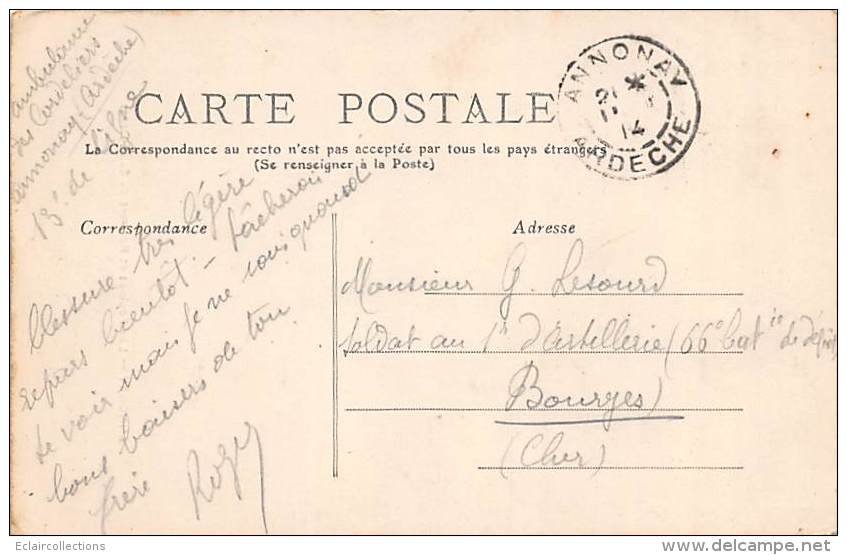 ambulance
des Cordeliers
annonay (Ardèche)
13e de ligne
CARTE POSTALE
La Correspondance au recto n'est pas acceptée par tous les pays étrangers
(Se renseigner à la Poste)
ANNONAY
14
ARDECHE
Correspondance
blessure très légère
repars bientôt - tâcherai
te voir mais je ne sais quand
bons baisers de ton
frère Roger
Adresse
Monsieur G. Lesourd
Soldat au 1r d'Artillerie (66e batie de dépôt)
Bourges
(Cher)
Eclaircollections
www.delcampe.net